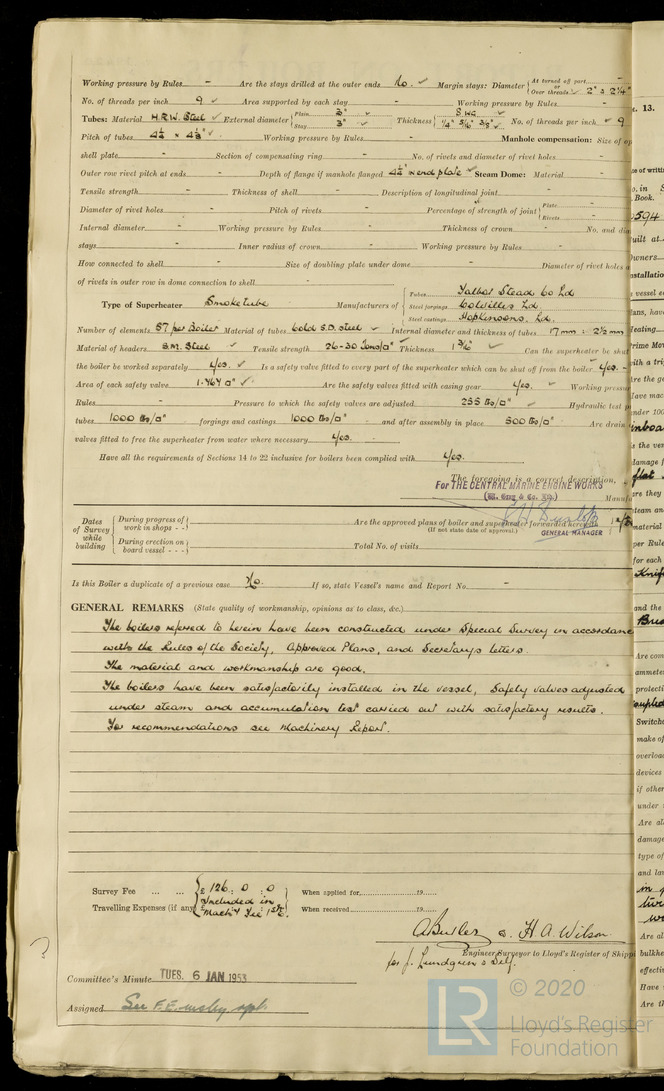 Working pressure by Rules - Are the stays drilled at the outer ends No. ✓ Margin stays: Diameter { At turned off part - or Over threads ✓ 2" & 2 1/4"
No. of threads per inch 9 ✓ Area supported by each stay - Working pressure by Rules -
Tubes: Material H.R.W. Steel ✓ External diameter { Plain 3" ✓ Stay 3" ✓ Thickness { 8 WG ✓ 1/4" 5/16" 3/8" ✓ No. of threads per inch ✓ 9
Pitch of tubes ✓ Working pressure by Rules - Manhole compensation: Size of op
shell plate - Section of compensating ring - No. of rivets and diameter of rivet holes -
Outer row rivet pitch at ends - Depth of flange if manhole flanged end plate ✓ Steam Dome: Material -
Tensile strength - Thickness of shell - Description of longitudinal joint -
Diameter of rivet holes - Pitch of rivets - Percentage of strength of joint { Plate - Rivets -
Internal diameter - Working pressure by Rules - Thickness of crown - No. and dia
stays - Inner radius of crown - Working pressure by Rules -
How connected to shell - Size of doubling plate under dome - Diameter of rivet holes a
of rivets in outer row in dome connection to shell -
Type of Superheater Smoketube Manufacturers of { Tubes Talbot Stead Co Ltd
Steel forgings Colvilles Ltd
Steel castings Hopkinsons. Ltd.
Number of elements 57 per Boiler Material of tubes Cold S.D. steel ✓ Internal diameter and thickness of tubes 17mm : 2½mm
Material of headers S.M. Steel ✓ Tensile strength 26-30 Tons/□" ✓ Thickness 1 3/16" ✓ Can the superheater be shut
the boiler be worked separately Yes. ✓ Is a safety valve fitted to every part of the superheater which can be shut off from the boiler Yes. -
Area of each safety valve 1.4764 □" ✓ Are the safety valves fitted with easing gear Yes. ✓ Working pressu
Rules - Pressure to which the safety valves are adjusted 255 lbs/□" ✓ Hydraulic test p
tubes 1000 lbs/□" forgings and castings 1000 lbs/□" - and after assembly in place 500 lbs/□" Are drain
valves fitted to free the superheater from water where necessary Yes. -
Have all the requirements of Sections 14 to 22 inclusive for boilers been complied with Yes.
The foregoing is a correct description,
For THE CENTRAL MARINE ENGINE WORKS
(Wm. Gray & Co. Ltd.) Manuf
GENERAL MANAGER
Dates of Survey while building { During progress of work in shops - - } Are the approved plans of boiler and superheater forwarded herewith
(If not state date of approval.)
{ During erection on board vessel - - - } Total No. of visits
Is this Boiler a duplicate of a previous case No. If so, state Vessel's name and Report No. -
GENERAL REMARKS (State quality of workmanship, opinions as to class, &c.)
The boilers referred to herein have been constructed under Special Survey in accordance
with the Rules of the Society, Approved Plans, and Secretary's letters.
The material and workmanship are good.
The boilers have been satisfactorily installed in the vessel, Safety valves adjusted
under steam and accumulation test carried out with satisfactory results.
For recommendations see Machinery Report.
Survey Fee ... ... £ 126 : 0 : 0 When applied for 19
Travelling Expenses (if any) £ Included in Mach'y Fee When received 19
A Butler & H. A. Wilson
Engineer Surveyor to Lloyd's Register of Shipp
for J. Lundgren & Self.
Committee's Minute TUES. 6 JAN 1953
Assigned See F.E. mchy rpt.
LR © 2020
Lloyd's Register
Foundation
e. 13.
Book.
594
uilt at
Owners
nstallatio